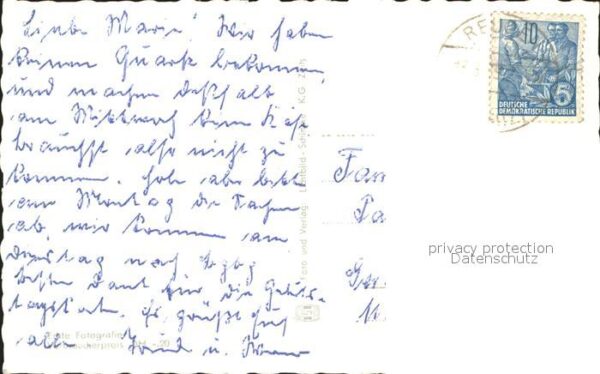 Liebe Marie! Wir haben
keinen Quark bekommen,
und machen deßhalb
am Mittwoch kein Käse
brauchst also nicht zu
kommen. Hole aber bitte
am Montag die Sachen
ab, wir kommen am
Dienstag nach
besten Dank für die Geburts-
tagskat. Es grüßt Euch
alle u.
Fam
Echte Fotografie
Foto und Verlag Lichtbild K.G.
10
DEUTSCHE
DEMOKRATISCHE REPUBLIK
5
privacy protection
Datenschutz